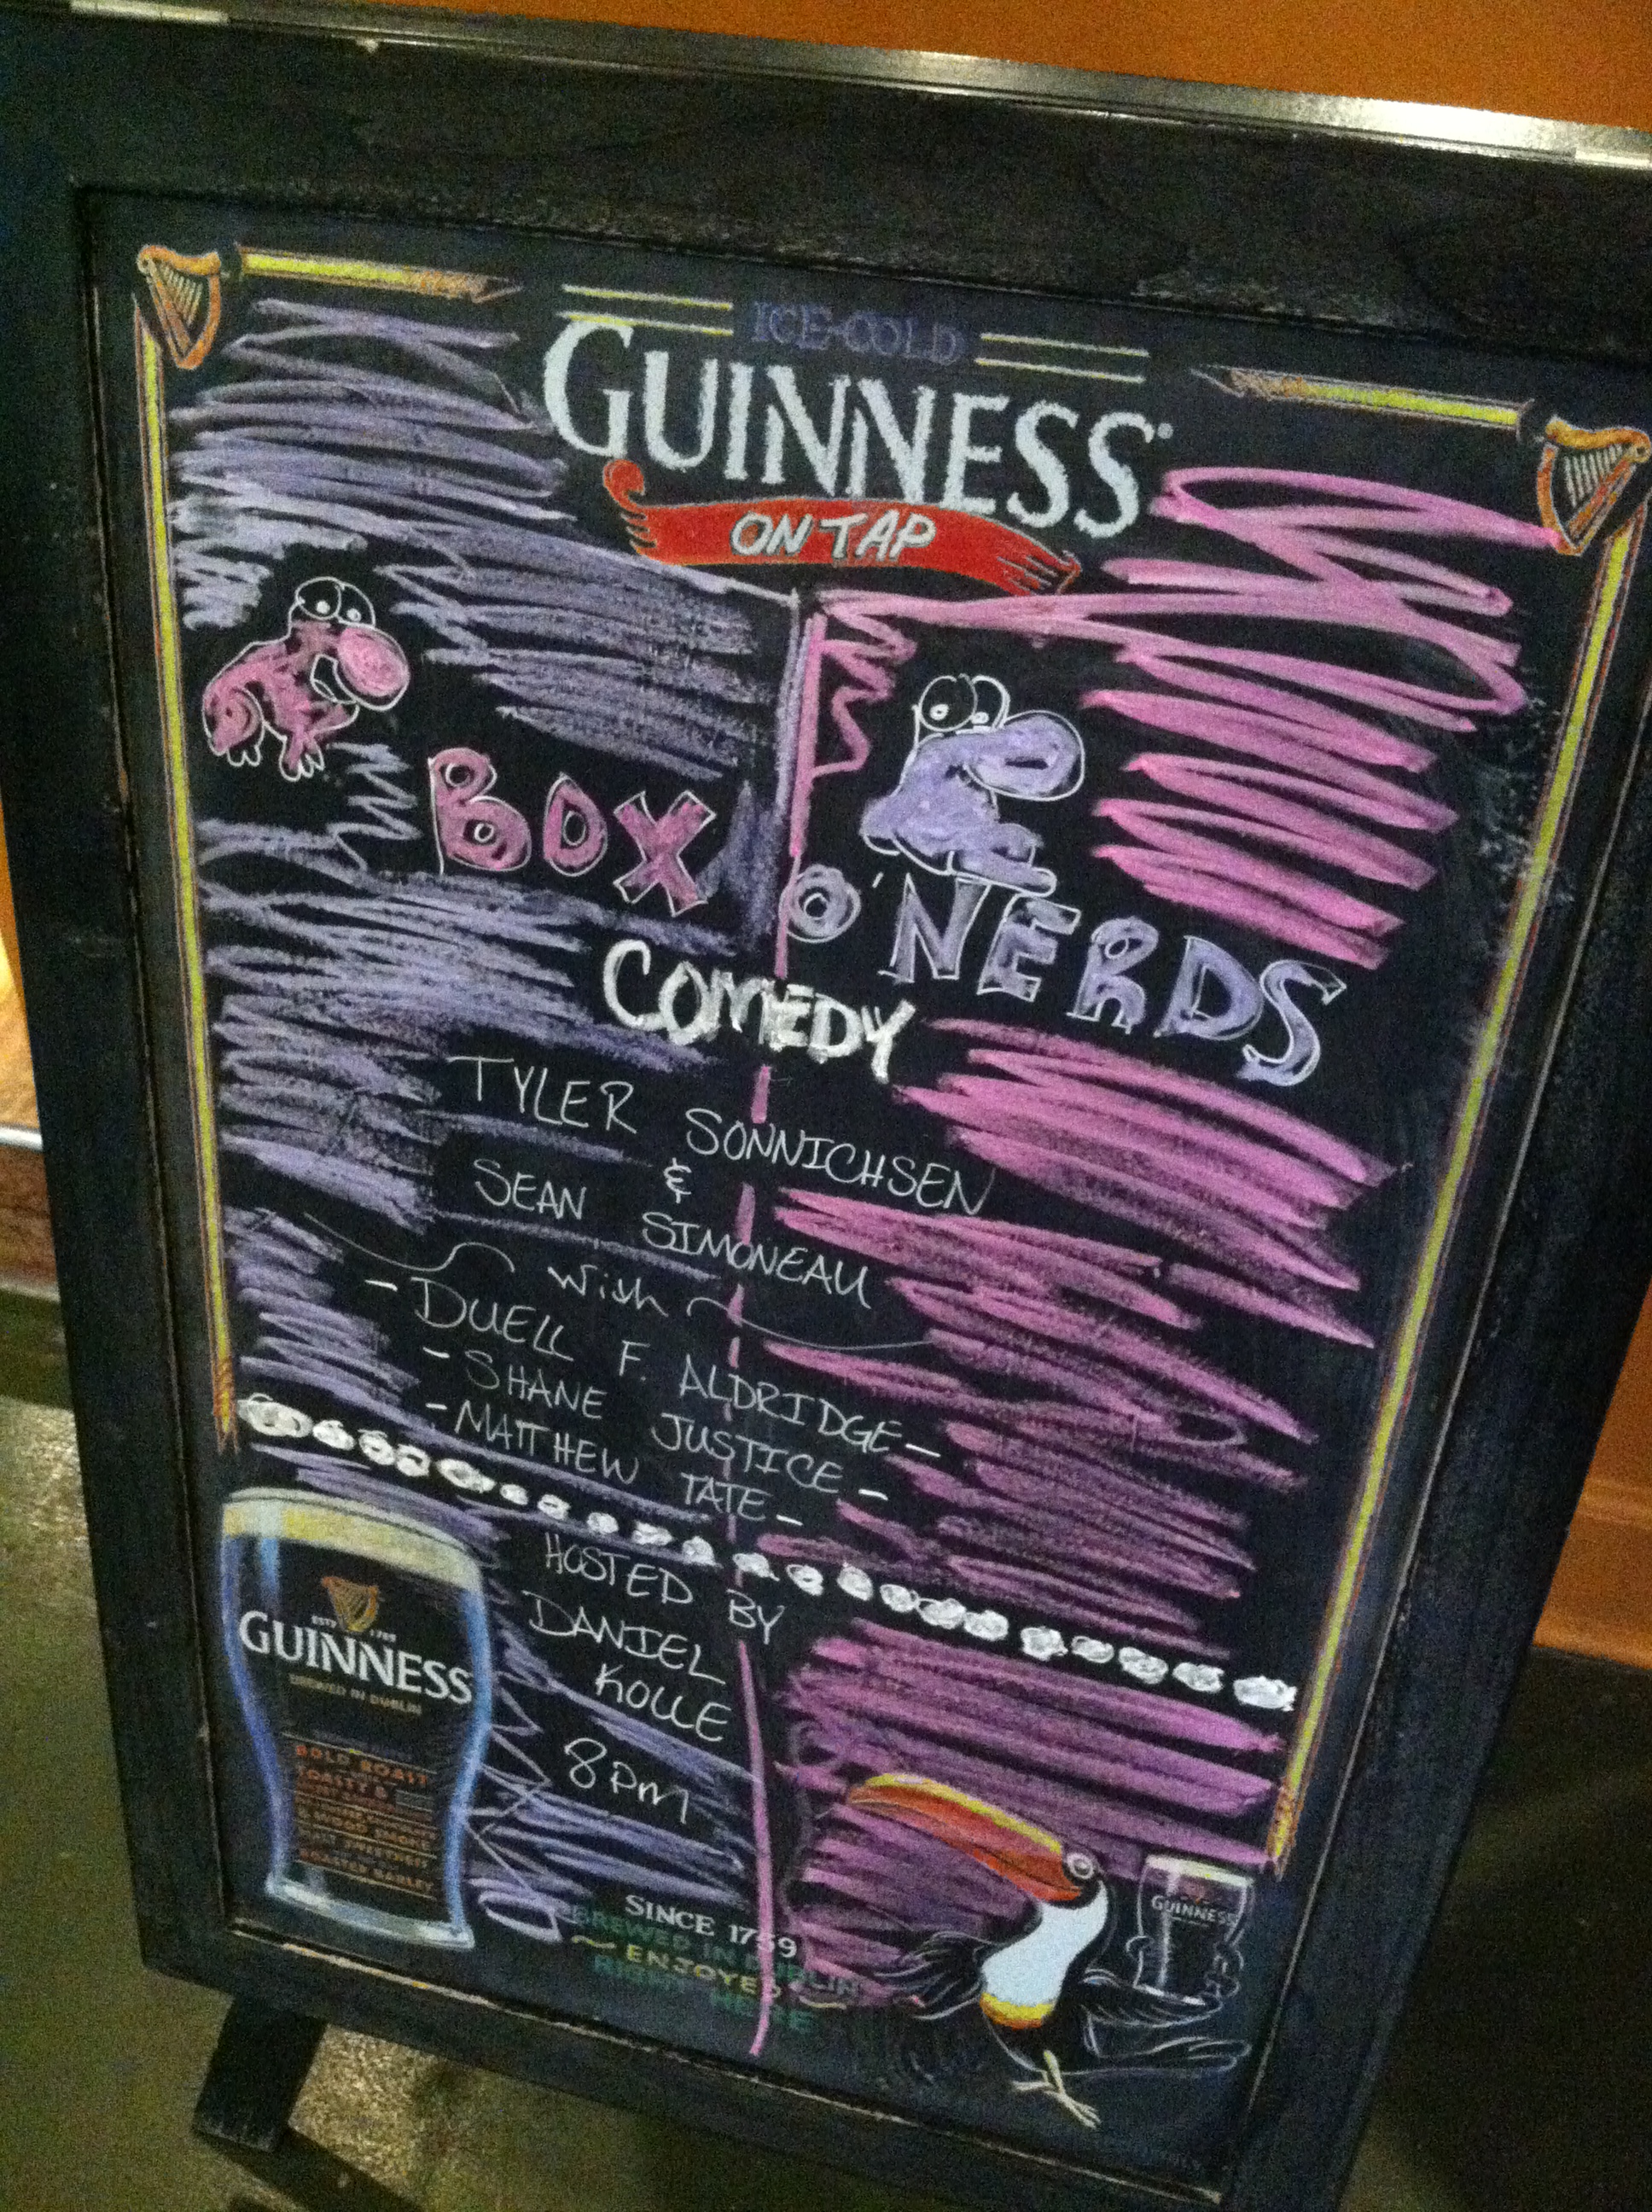 ICE-COLD
GUINNESS
ON TAP
BOX
O'NERDS
COMEDY
TYLER SONNICHSEN
&
SEAN SIMONEAU
with
- DUELL F. ALDRIDGE -
- SHANE JUSTICE -
- MATTHEW TATE -
HOSTED BY
DANIEL
KOLLE
8pm
ESTD 1759
GUINNESS
BREWED IN DUBLIN
BOLD ROAST
TOASTY &
WOOD SMOKE
ROASTED BARLEY
SINCE 1759
BREWED IN DUBLIN
~ENJOYED~
RIGHT HERE
GUINNESS